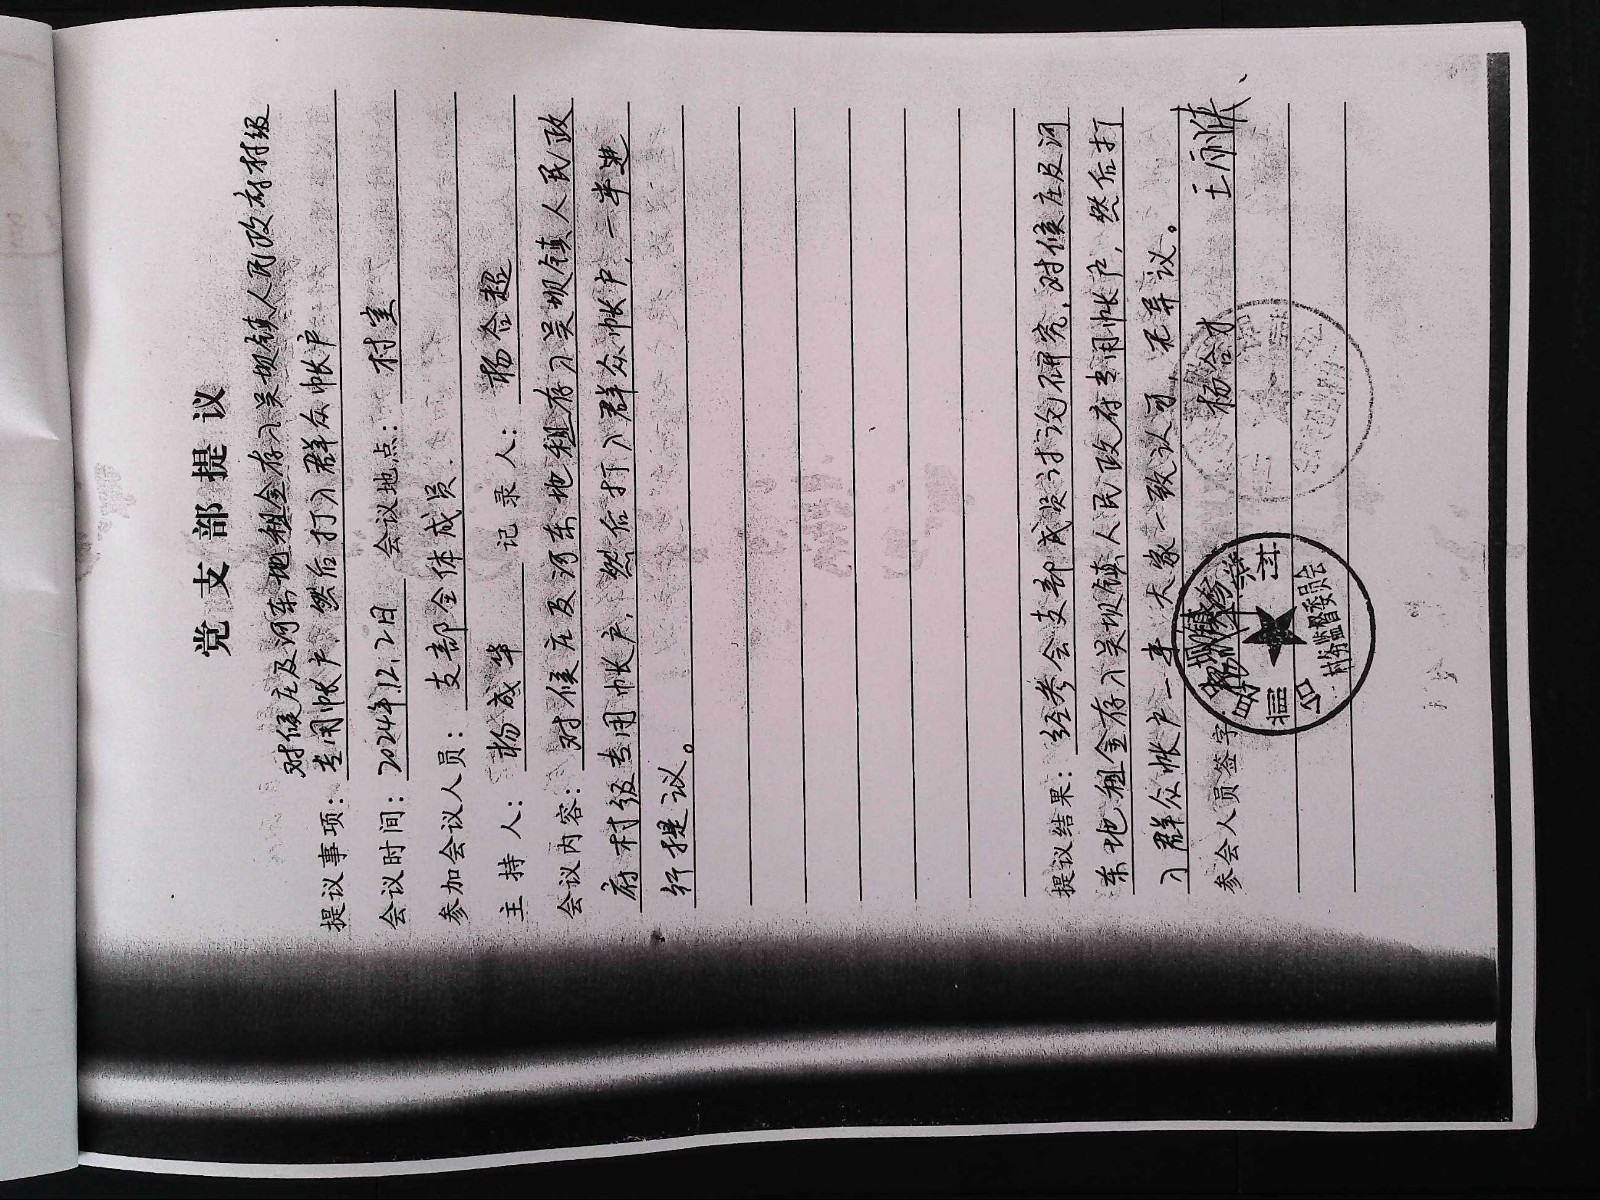 党支部提议
对候庄及河东地租金存入吴坝镇人民政府村级
提议事项：专用帐户然后打入群众帐户
会议时间：2024年12.2日 会议地点：村室
参加会议人员：支部全体成员
主持人：杨成华 记录人：杨合超
会议内容：对候庄及河东地租存入吴坝镇人民政
府村级专用帐户，然后打入群众帐户，一事进
行提议。
提议结果：经参会支部成员讨论研究，对候庄及河
东地租金存入吴坝镇人民政府专用帐户，然后打
入群众帐户一事大家一致认可，无异议。
参会人员签字 杨合才
村务监督委员会